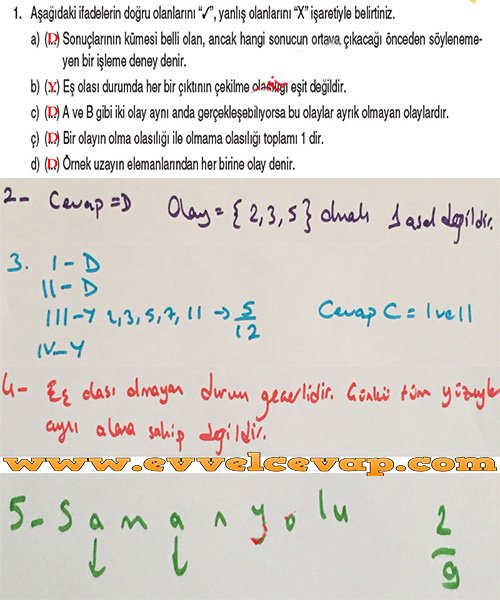 1. Aşağıdaki ifadelerin doğru olanlarını “✓”, yanlış olanlarını “X” işaretiyle belirtiniz.
a) (D) Sonuçlarının kümesi belli olan, ancak hangi sonucun ortaya çıkacağı önceden söyleneme-
yen bir işleme deney denir.
b) (Y) Eş olası durumda her bir çıktının çekilme eşit değildir.
c) (D) A ve B gibi iki olay aynı anda gerçekleşebiliyorsa bu olaylar ayrık olmayan olaylardır.
ç) (D) Bir olayın olma olasılığı ile olmama olasılığı toplamı 1 dir.
d) (D) Örnek uzayın elemanlarından her birine olay denir.
2- Cevap = D Olay = { 2, 3, 5 } olmalı 1 asal değildir.
3. I - D
II - D
III - Y 2, 3, 5, 7, 11 → 5/12 Cevap C = I ve II
IV - Y
4- Eş olası olmayan durum geçerlidir. Çünkü tüm yüzeyler
aynı alana sahip değildir.
www.evvelcevap.com
5- S a m a n y o l u 2/9